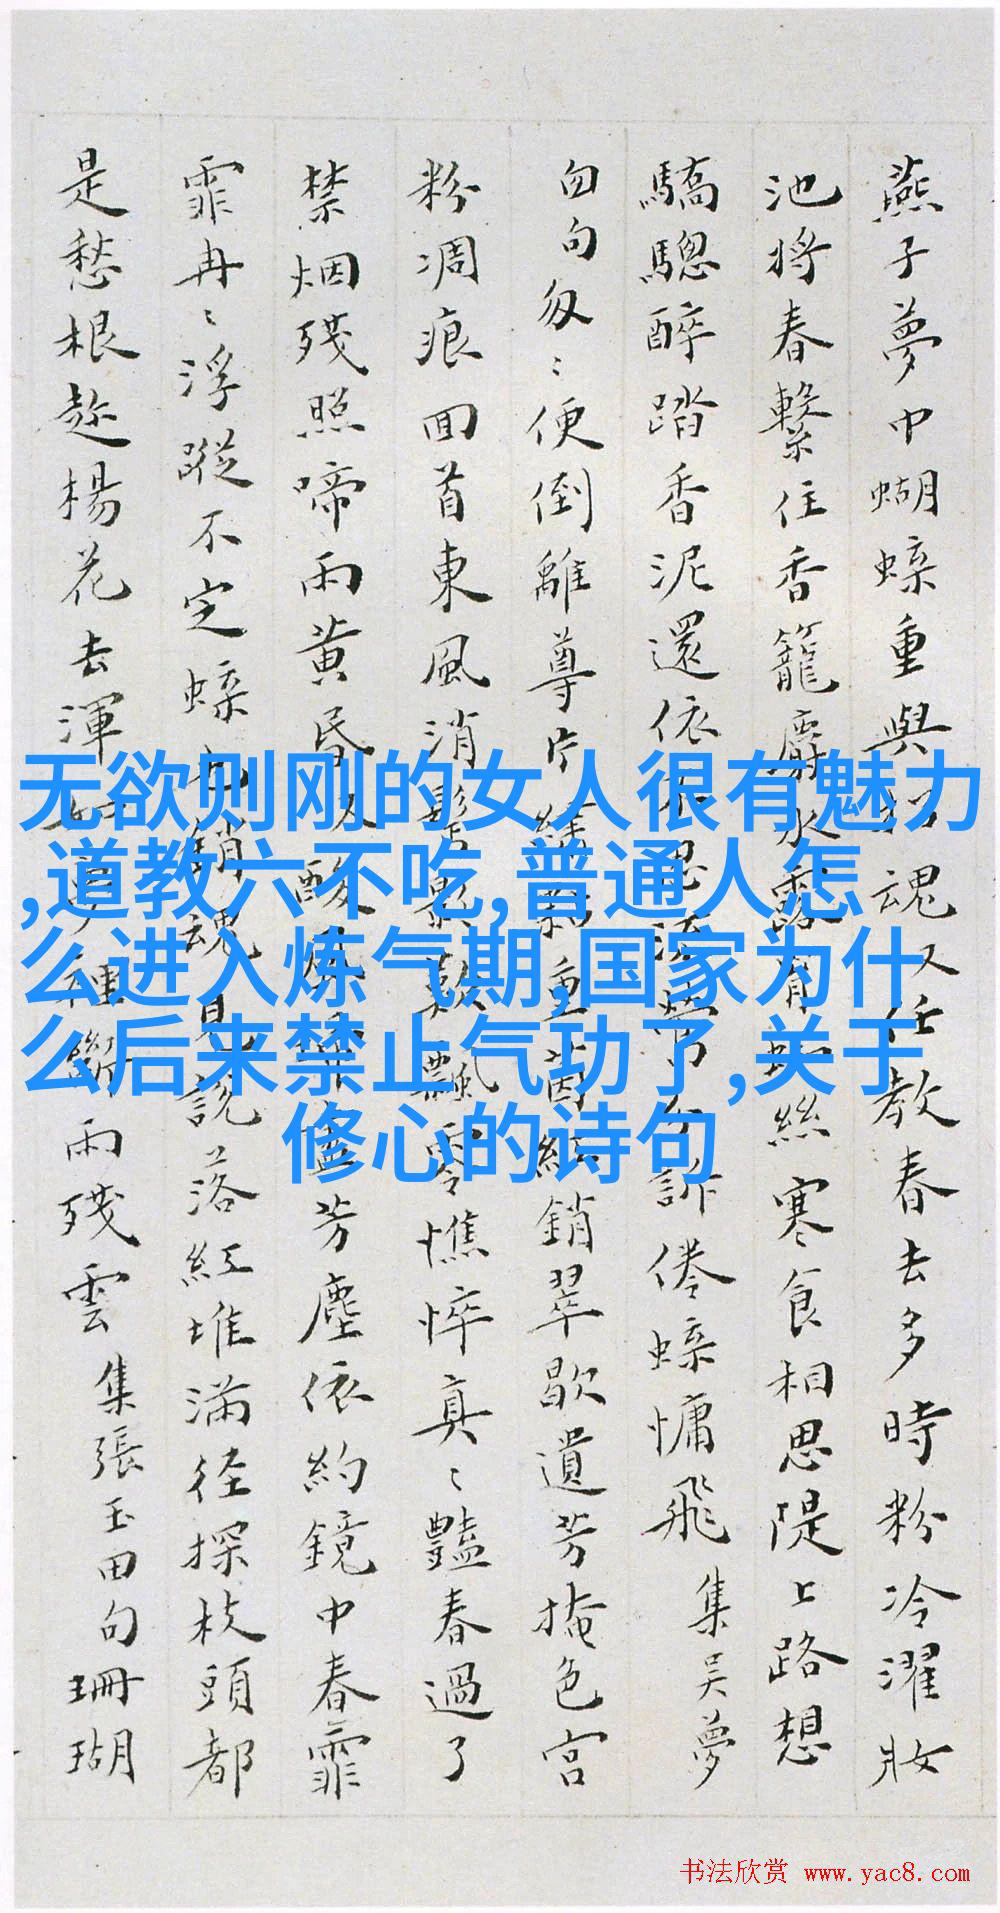 燕子夢中蝴蝶重與魂又任教春去多時粉冷濯妝
池將春繫住香籠麝水露絲寒食相思隄上路想
驕驄醉踏香泥還依訴倦蝶慵飛 集吳夢
句匆〻便倒離尊片重茵紅銷翠歇遺芳掩色宮
粉凋痕回首東風消鬢影歎飄零憔悴真〻豔春過了
禁烟殘照啼雨黃昏人酸盡芳塵依約鏡中春霏
霏冉〻浮蹤不定蝶也銷魂見說落紅堆滿徑探枝頭都
是愁根趁楊花去渾種斷雨殘雲 集張玉田句 珊瑚
无欲则刚的女人很有魅力
,道教六不吃,普通人怎
么进入炼气期,国家为什
么后来禁止气功了,关于
修心的诗句
书法欣赏 www.yac8.com